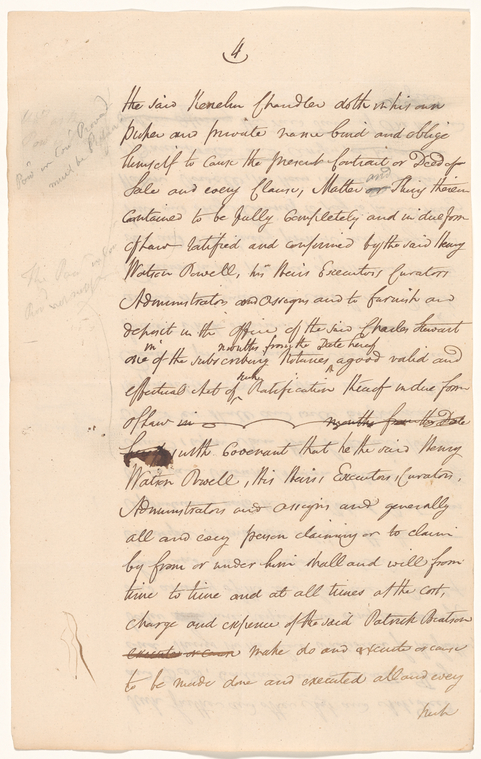 4
the said Kenelm Chandler doth in his own
proper and private name bind and oblige
himself to cause the present Contrait or Deed of
Sale and every Clause, Matter and Thing therein
contained to be fully completely and in due form
of Law ratified and confirmed by the said Henry
Watson Powell, his Heirs Executors Curators
Administrators and assigns and to furnish and
deposit in the office of the said Charles Stewart
in months from the Date hereof
one of the subscribing Notaries a good valid and
such
effectual Act of Ratification thereof in due form
of Law in months from the Date
hereof with Covenant that he the said Henry
Watson Powell, His Heirs, Executors, Curators,
Administrators and assigns and generally
all and every person claiming or to claim
by from or under him shall and will from
time to time and at all times at the cost,
charge and expence of the said Patrick Beatson
execute or cause make do and execute or cause
to be made done and executed all and every
such